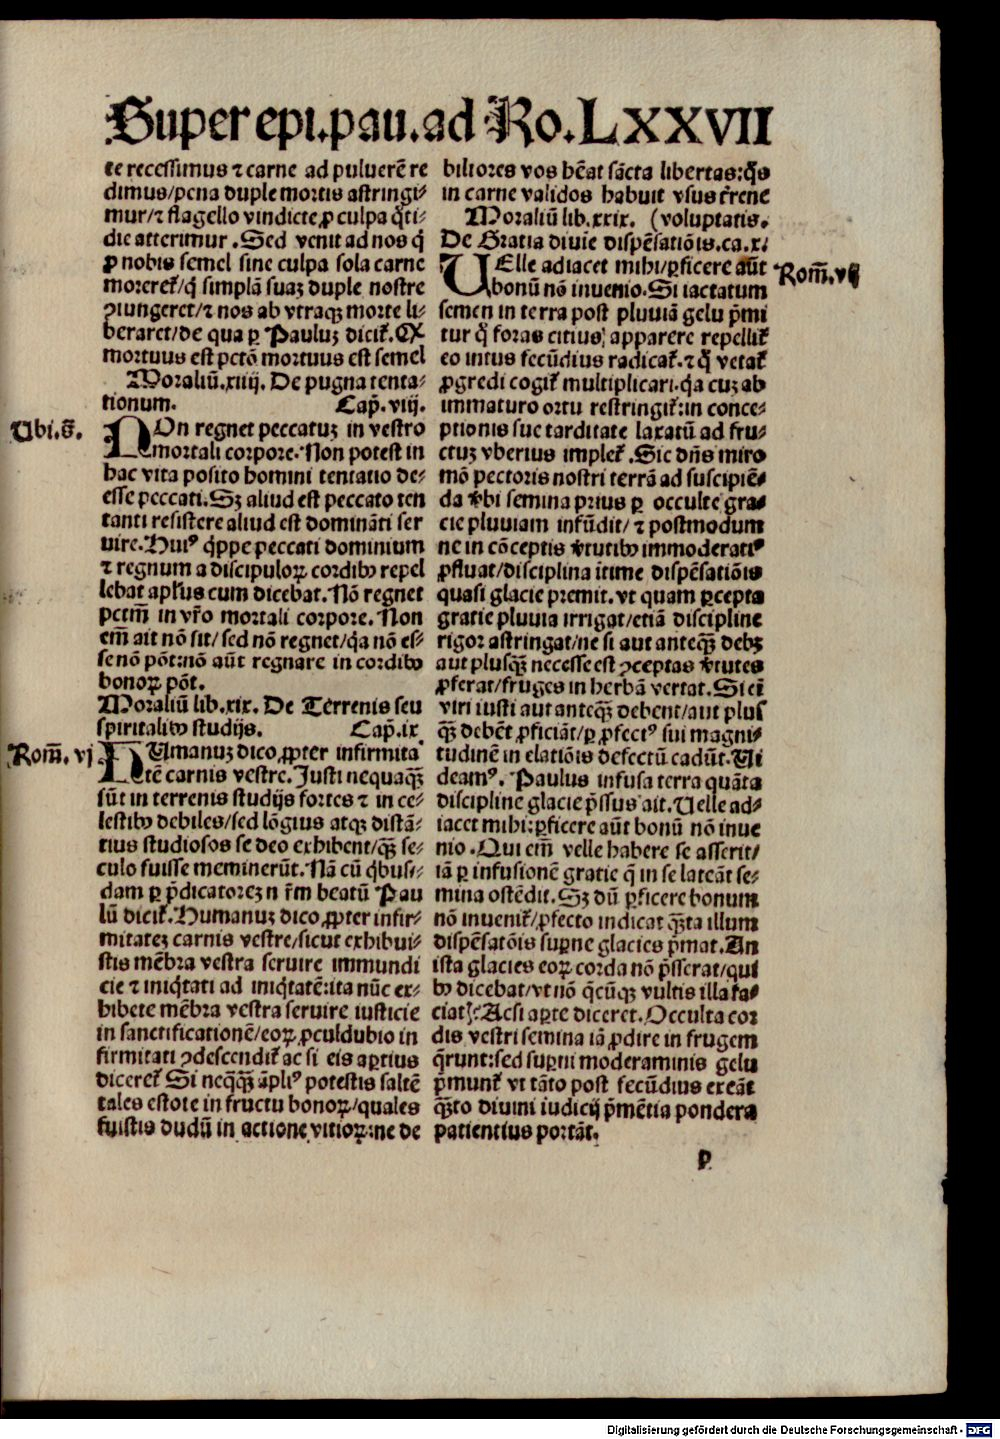 Super epi.pau.ad Ro.LXXVII
te recessimus ⁊ carne ad puluerē re
dimus/pena duple mortis astringi⸗
mur/⁊ flagello vindicte ꝓ culpa q̊ti⸗
die atterimur .Sed venit ad nos q̇
ꝓ nobis semel sine culpa sola carne
moreret᷑/q̇ simplā suaꝫ duple nostre
ↄiungeret/⁊ nos ab vtraqꝫ morte li⸗
beraret/de qua ꝑ Pauluꝫ dicit᷑. Qꝙ
mortuus est pctō mortuus est semel
Moraliū.xiiij. De pugna tenta⸗
tionum. Cap̄. viij.
Ubi.s̄.
NOn regnet peccatuꝫ in vestro
mortali corpore. Non potest in
hac vita posito homini tentatio de⸗
esse peccati. Sꝫ aliud est peccato ten
tanti resistere aliud est domināti ser
uire. Huiꝰ q̇ppe peccati dominium
⁊ regnum a discipuloꝝ cordibꝰ repel
lebat apl̄us cum dicebat. Nō regnet
pctm̄ in vr̄o mortali corpore. Non
em̄ ait nō sit/ sed nō regnet/q̇a nō es⸗
se nō pōt:nō aūt regnare in cordibꝰ
bonoꝝ pōt.
Moraliū lib.xix. De Terrenis seu
spiritalibꝰ studijs. Cap̄.ix.
Rom̄. vj
HUmanuꝫ dico ꝓpter infirmita
tē carnis vestre. Justi nequaꝗ̄
sūt in terrenis studijs fortes ⁊ in ce⸗
lestibꝰ debiles/sed lōgius atqꝫ distā⸗
tius studiosos se deo exhibent/ꝗ̄ se⸗
culo fuisse meminerūt. Nā cū q̇busi⸗
dam ꝑ p̄dicatoreꝫ n fr̄m beatū Pau
lū dicit᷑. Humanuꝫ dico ꝓpter infir⸗
mitateꝫ carnis vestre/sicut exhibui⸗
stis mēbra vestra seruire immundi
cie ⁊ iniq̇tati ad iniq̇tatē:ita nūc ex⸗
hibete mēbra vestra seruire iusticie
in sanctificationē/eoꝝ ꝓculdubio in
firmitati ↄdescendit᷑ ac si eis aꝑtius
diceret᷑ Si neqꝗ̄ āpliꝰ potestis saltē
tales estote in fructu bonoꝝ/quales
fuistis dudū in actione vitioꝝ:ne de
biliores vos hēat sācta libertas:q̇s
in carne validos habuit vsus ťrene
Moraliū lib.xxix. (voluptatis.
De Gratia diuīe dispēsatiōis.ca.x.
Rom̄.vij
UElle adiacet mihi/ꝑficere aūt
bonū nō inuenio. Si iactatum
semen in terra post pluuiā gelu p̄mi
tur qđ foras citius apparere repellit᷑
eo intus fecūdius radicat᷑.⁊ qđ vetat᷑
ꝓgredi cogit᷑ multiplicari.q̇a cuꝫ ab
immaturo ortu restringit᷑:in conce⸗
ptionis sue tarditate laxatū ad fru⸗
ctuꝫ vberius implet᷑ .Sic dn̄s miro
mō pectoris nostri terrā ad suscipiē⸗
da v̓bi semina prius ꝑ occulte gra⸗
cie pluuiam infūdit/ ⁊ postmodum
ne in cōceptis v̓tutibꝰ immoderatiꝰ
ꝓfluat/disciplina ītime dispēsatiōis
quasi glacie premit. vt quam ꝑcepta
gratie pluuia irrigat/etiā discipline
rigor astringat/ne si aut anteꝗ̄ debꝫ
aut plusꝗ̄ necesse est ↄceptas v̓tutes
ꝓferat/fruges in herbā vertat. Si eī
viri iusti aut anteꝗ̄ debent/aut plus
ꝗ̄ debēt ꝓficiāt/ꝑ ꝓfectꝰ sui magni⸗
tudinē in elatiōis defectū cadūt. Vi
deamꝰ. Paulus infusa terra quāta
discipline glacie p̄ssus ait. Uelle ad⸗
iacet mihi:ꝑficere aūt bonū nō inue
nio .Qui em̄ velle habere se asserit/
iā ꝑ infusionē gratie q̄ in se lateāt se⸗
mina ostēdit. Sꝫ dū ꝑficere bonum
nō inuenit᷑/ꝓfecto indicat ꝗ̄ta illum
dispēsatōis suꝑne glacies p̄mat. An
ista glacies eoꝝ corda nō p̄sserat/qui
bꝰ dicebat/vt nō q̄cūqꝫ vultis illa fa⸗
ciatꝭ: Acsi aꝑte diceret. Occulta cor
dis vestri semina iā ꝓdire in frugem
q̄runt:sed suꝑni moderaminis gelu
p̄munt᷑ vt tāto post fecūdius exeāt
ꝗ̄to diuini iudicij p̄mētia pondera
patientius portāt.
p
Digitalisierung gefördert durch die Deutsche Forschungsgemeinschaft - DFG